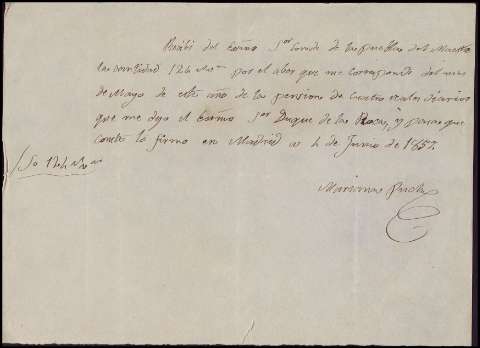 Recibí del Exmo Sor Conde de la Puebla del Maestre
la cantidad 124 rs por el aber que me corresponde del mes
de Mayo de este año de la pension de cuatro reales diarios
que me dejo el Exmo Sor Duque de las Rocas, y para que
conste lo firmo en Madrid a 4 de Junio de 1857.
Son 124 rs
Mariana